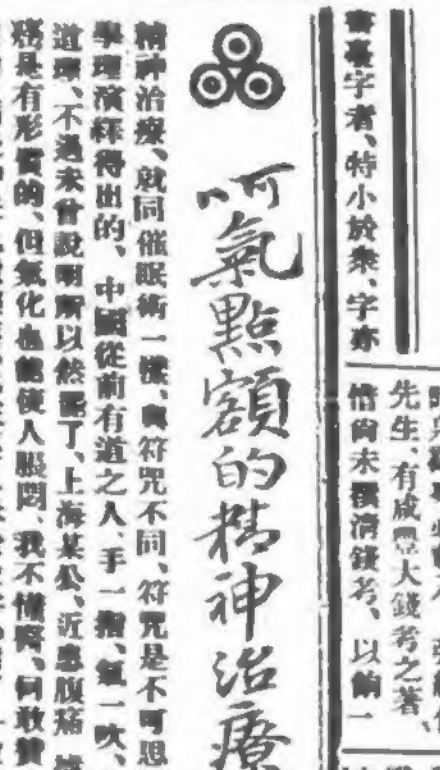 書裏字者、特小於衆、字亦
先生、有咸豐大錢考之著、
惜尚未獲清錢考、以餉一
呵氣點額的精神治療
精神治療、就同催眠術一樣、與符咒不同、符咒是不可思
學理演繹得出的、中國從前有道之人、手一指、氣一吹、
道理、不過未曾說明所以然罷了、上海某公、近患腹痛
是有形質的、但氣化也能使人脹悶、我不懂醫、何敢贊